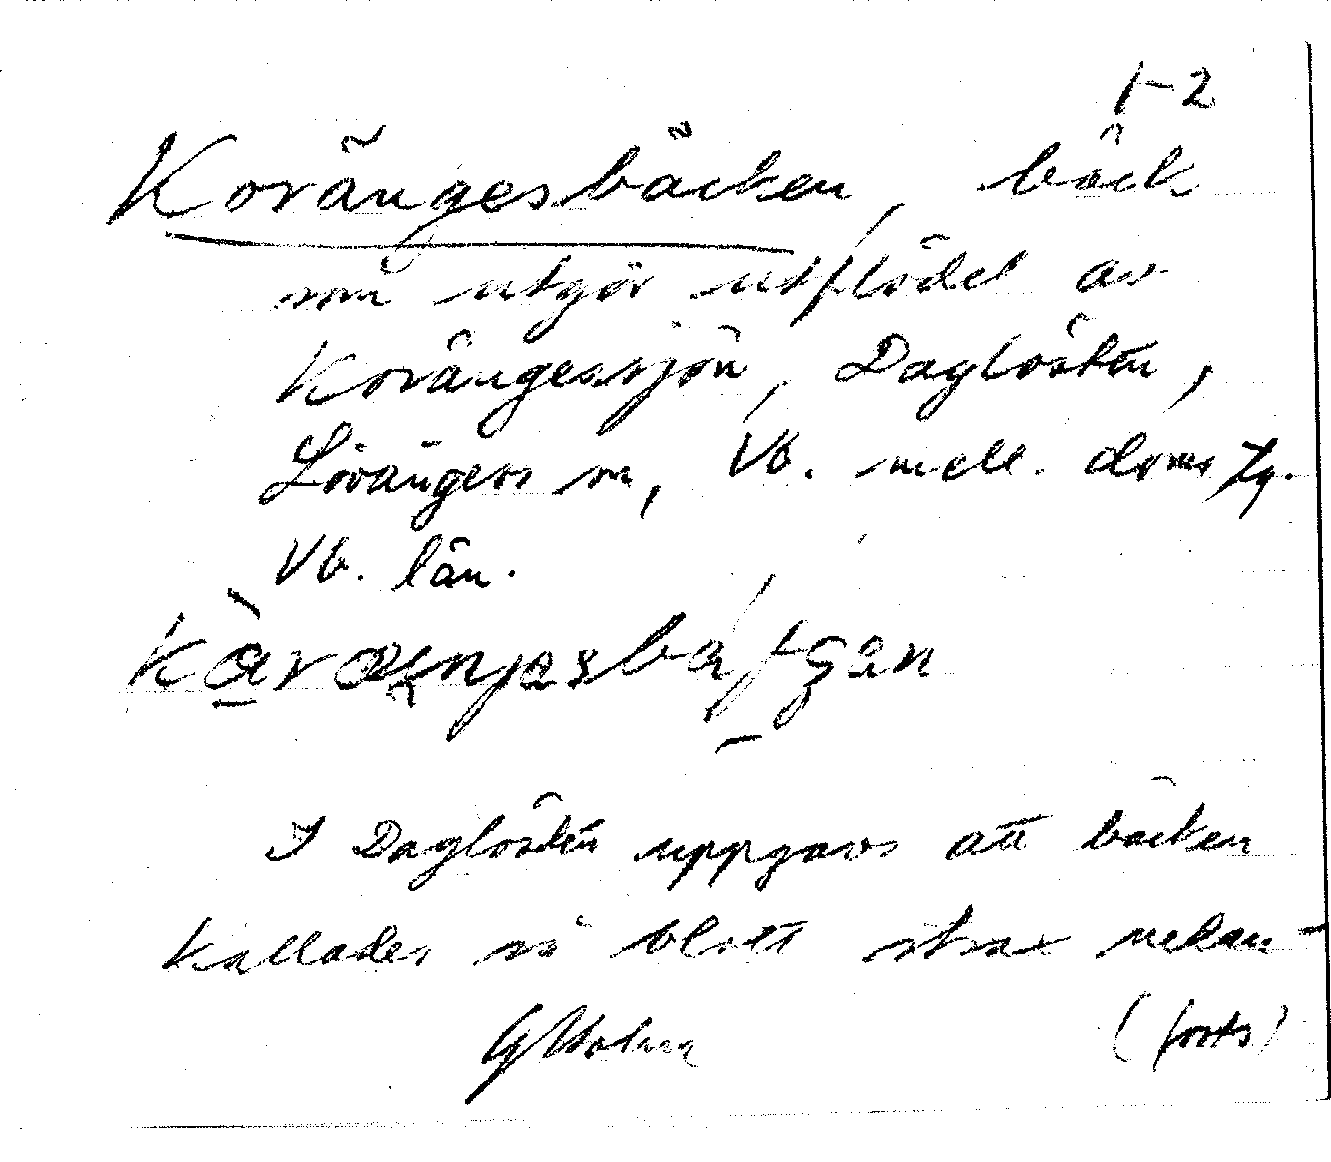 1-2
Korängesbäcken, bäck
som utgör utflödet av
Korängessjön, Daglösten,
Lövångers sn, Vb. mell. doms tg.
Vb. län.
I Daglösten uppgavs att bäcken
kallades så blott strax nedan-
G Holm (forts)